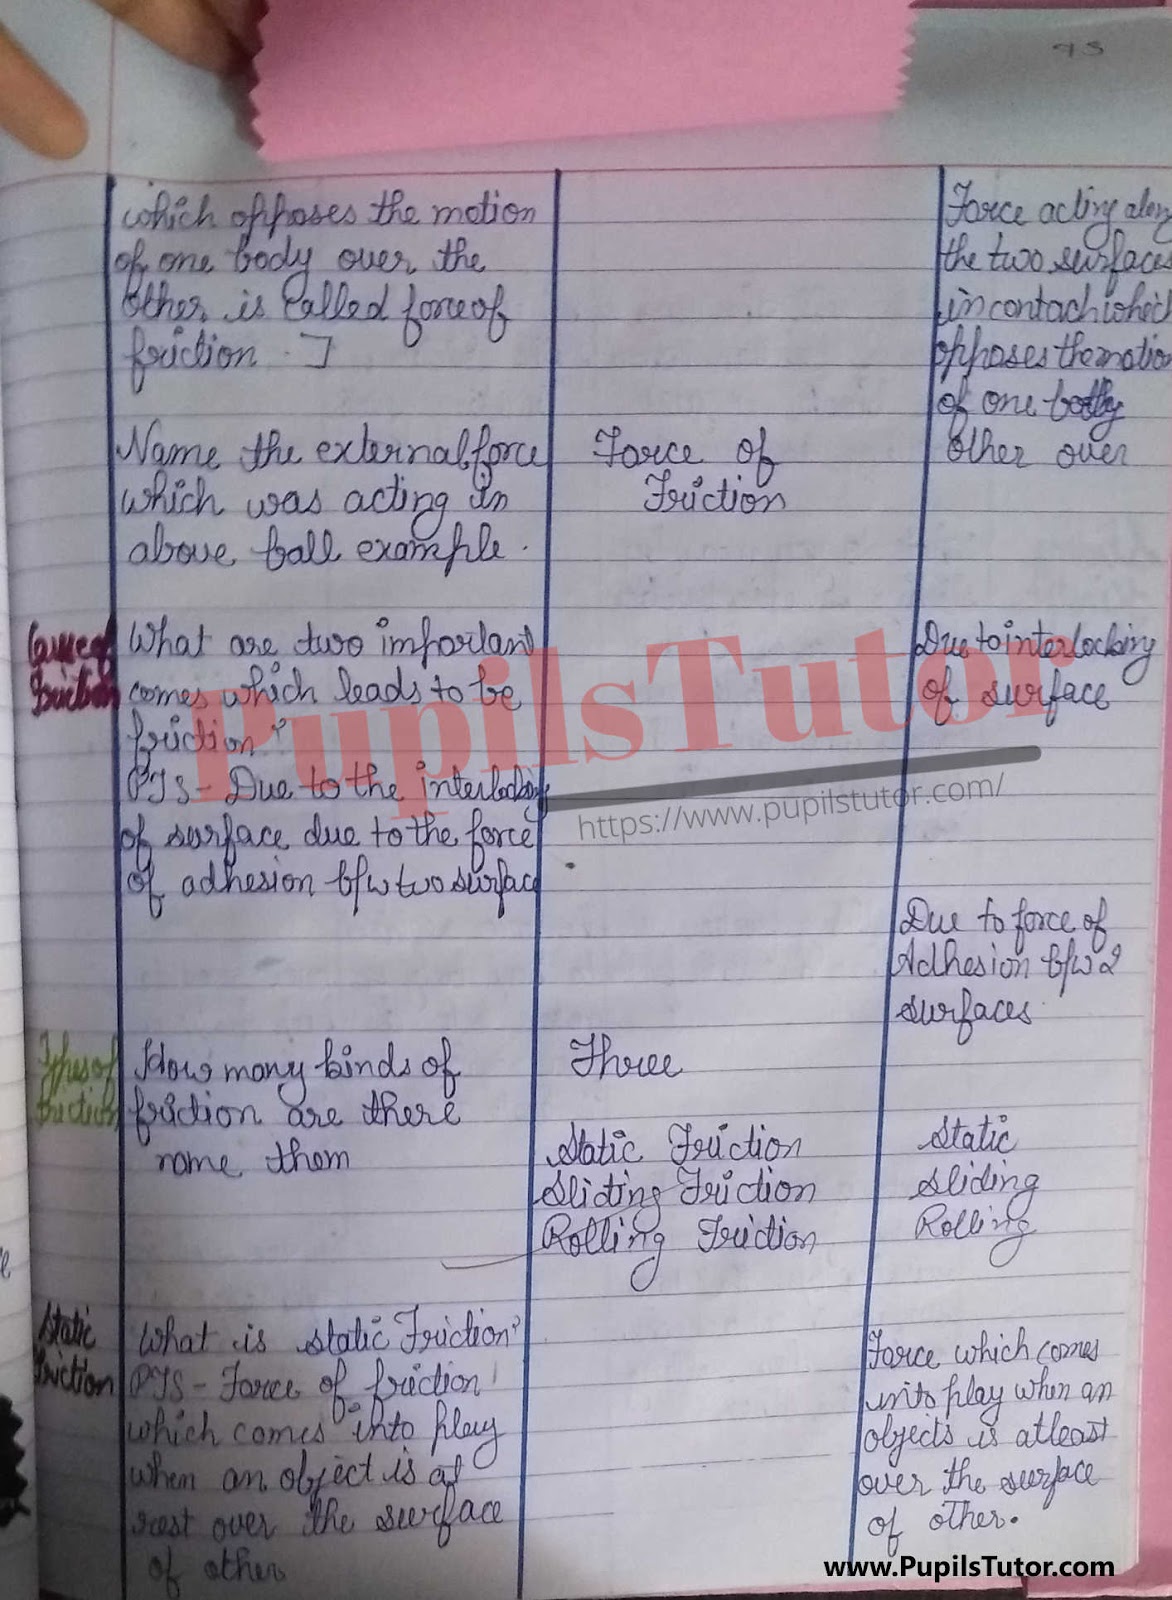 95
which opposes the motion
of one body over the
other is called force of
friction. ]
Name the external force
which was acting in
above ball example.
Force of
Friction
Force acting along
the two surfaces
in contach which
opposes the motion
of one body
other over
Cause of
Friction
What are two important
comes which leads to be
friction?
PTS - Due to the interlocking
of surface due to the force
of adhesion b/w two surface
Due to interlocking
of surface
Due to force of
Adhesion b/w 2
surfaces.
Types of
friction
How many kinds of
friction are there
name them
Three
Static Friction
Sliding Friction
Rolling Friction
Static
Sliding
Rolling
Static
Friction
What is static Friction?
PTS - Force of friction
which comes into play
when an object is at
rest over the surface
of other
Force which comes
into play when an
objects is atleast
over the surface
of other.
PupilsTutor
https://www.pupilstutor.com/
www.PupilsTutor.com